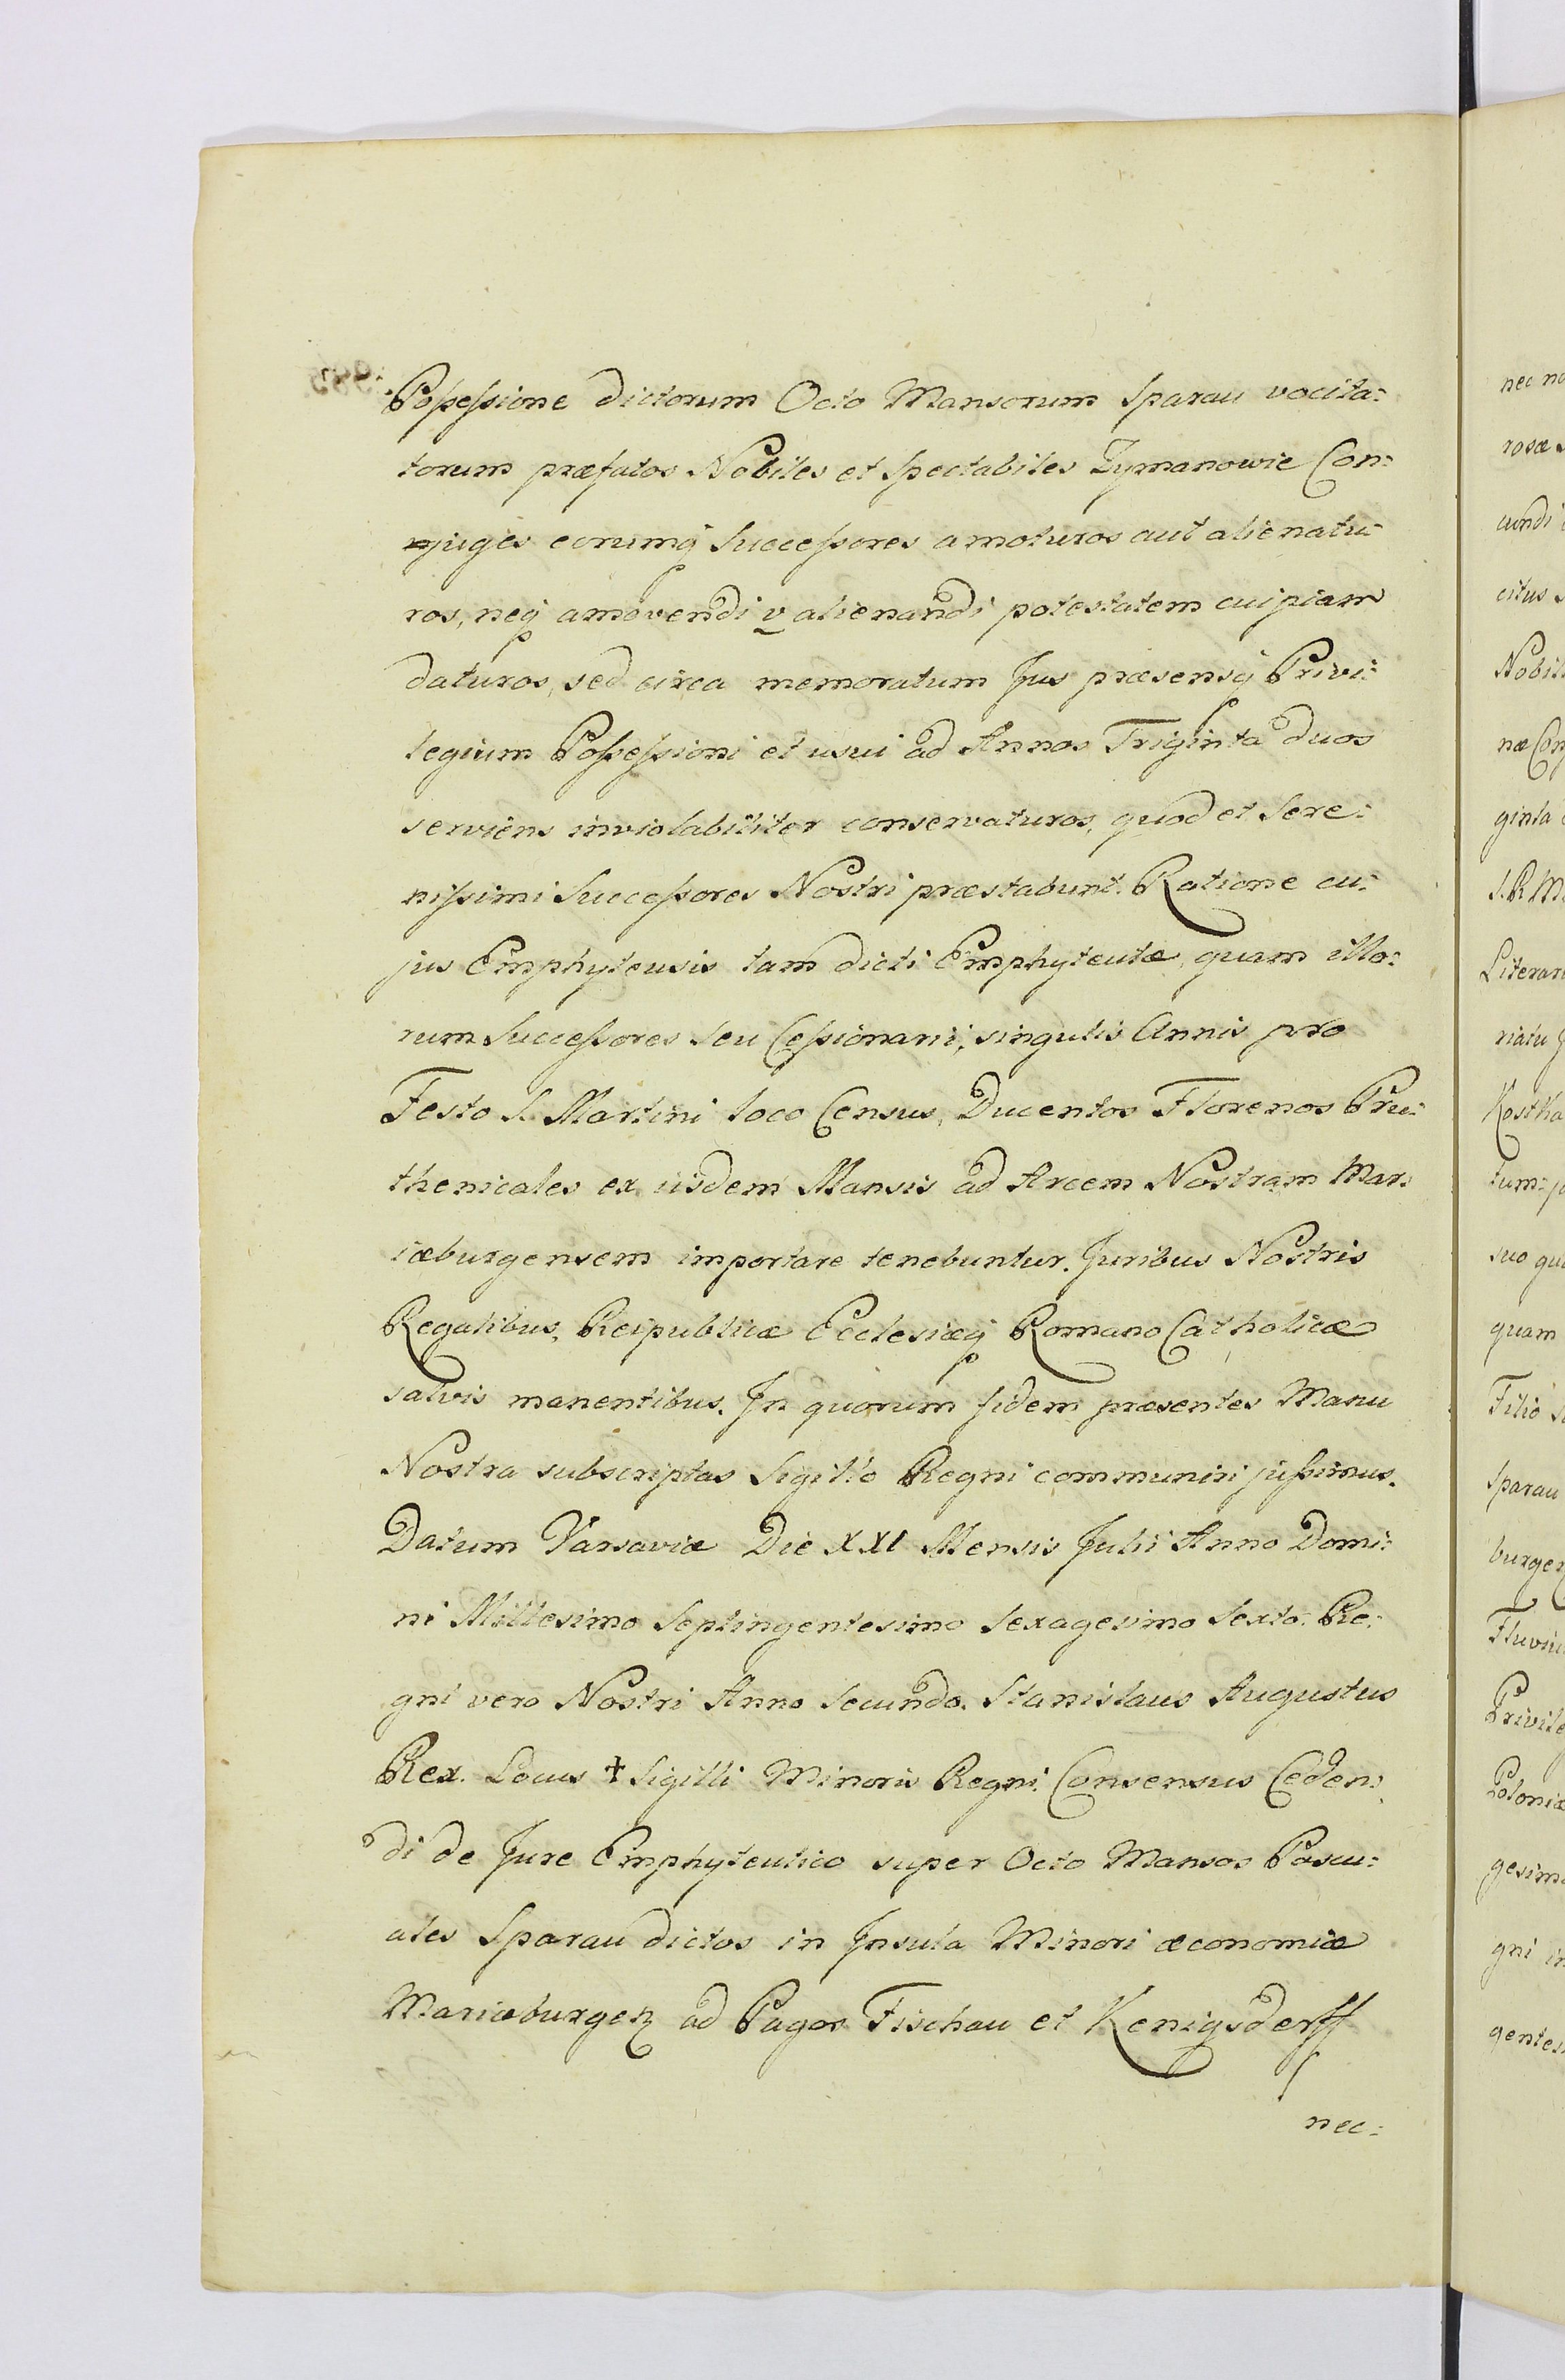 Possessione dictorum Octo Mansorum Sparau vocita:
torum præfatos Nobiles et Spectabiles Zymanowie Con:
juges eorumq Successores amoturos aut alienatu:
ros, neq amovendi v alienandi potestatem cuipiam
daturos, sed circa memoratum Jus præsensq Privi:
legium Possessioni et usui ad Annos Triginta duos
serviens inviolabiliter conservaturos, quod et Sere:
nissimi Successores Nostri præstabunt. Ratione cu:
jus Emphyteusis tam dicti Emphyteutæ, quam illo:
rum Successores seu Cessionarii, singulis Annis pro
Festo S. Martini loco Census, Ducentos Florenos Pru:
thenicales ex iisdem Mansis ad Arcem Nostram Mar:
iæburgensem importare tenebuntur. Juribus Nostris
Regalibus, Reipublicæ Ecclesiæq Romano Catholicæ
salvis manentibus. In quorum fidem præsentes Manu
Nostra subscriptas Sigillo Regni communiri jussimus.
Datum Varsaviæ Die XXI Mensis Julii Anno Domi:
ni Millesimo Septingentesimo Sexagesimo Sexto. Re:
gni vero Nostri Anno Secundo. Stanislaus Augustus
Rex. Locus ✝ Sigilli Minoris Regni. Consensus Ceden:
di de Jure Emphyteutico super Octo Mansos Pascu:
ales Sparau dictos in Insula Minori æconomiæ
Mariæburgen ad Pagos Fischau et Kenigsderff
nec:
nec no
rosæ
cundi
citus
Nobil
næ Con
ginta
S. R. M.
Literar
riatu
Kostka
tum
suo qu
quam
Filio
Sparau
burgen
Fluviu
Privile
Poloniæ
gesim
gni in
gentes